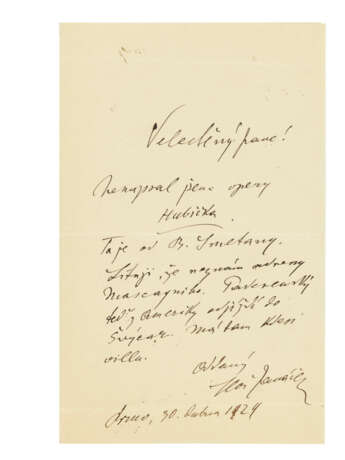 Velectěný pane!
Nenapsal jsem opery
Hubička.
Ta je od B. Smetany.
Lituji, že neznám adresy
Mascagniho. Paderewský
teď z Ameriky odjíždí do
Švýcar. Má tam
villu.
Oddaný
Leoš Janáček
Brno, 30. dubna 1924